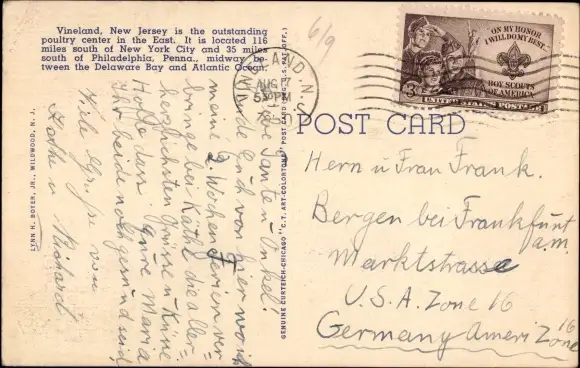 Vineland, New Jersey is the outstanding
poultry center in the East. It is located 116
miles south of New York City and 35 miles
south of Philadelphia, Penna., midway be-
tween the Delaware Bay and Atlantic Ocean.
6/9
VINELAND, N.J.
AUG 17
5 30 PM
"ON MY HONOR
I WILL DO MY BEST..."
BOY SCOUTS
OF AMERICA
3¢
UNITED STATES POSTAGE
POST CARD
Liebe Tante u. Onkel!
Will Euch von hier wo ich
meine 2. Wochen Ferien ver-
bringe bei Käthe die aller-
herzlichsten Grüsse u. Küsse
Eure Maria
Hoffe dass
Ihr beide noch gesund seid
Viele Grüsse von
Käthe u Richard
Herrn u Frau Frank.
Bergen bei Frankfurt
a.m.
Marktstrasse
U.S.A. Zone 16
Germany Ameri Zone
16
LYNN H. BOYER, JR., WILDWOOD, N. J.
GENUINE CURTEICH-CHICAGO "C.T. ART-COLORTONE" POST CARD (REG. U.S. PAT. OFF.)